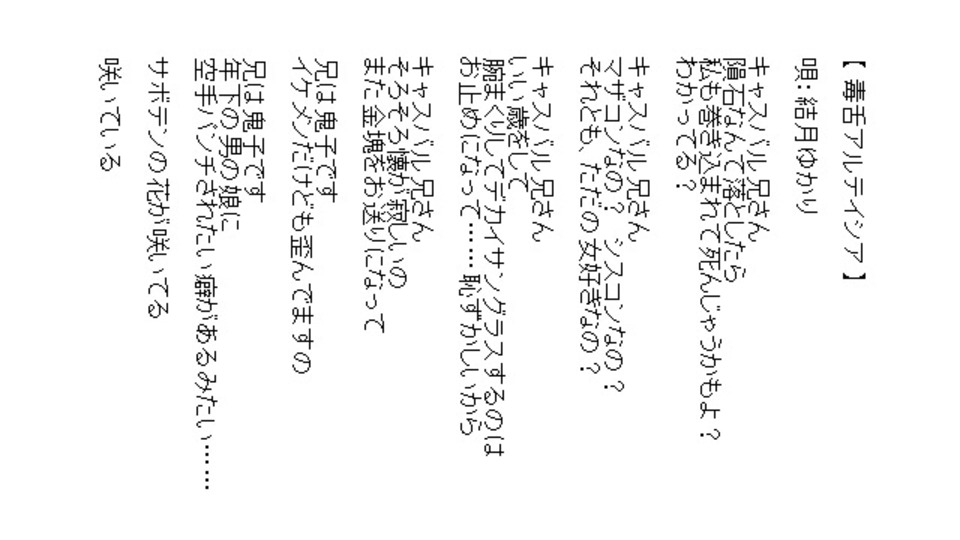 【 毒舌アルテイシア 】
唄：結月ゆかり
キャスバル兄さん
隕石なんて落としたら
私も巻き込まれて死んじゃうかもよ？
わかってる？
キャスバル兄さん
マザコンなの？　シスコンなの？
それとも、ただの女好きなの？
キャスバル兄さん
いい歳をして
腕まくりしてデカイサングラスするのは
お止めになって……恥ずかしいから
キャスバル兄さん
そろそろ懐が寂しいの
また金塊をお送りになって
兄は鬼子です
イケメンだけども歪んでますの
兄は鬼子です
年下の男の娘に
空手パンチされたい癖があるみたい……
サボテンの花が咲いてる
咲いている